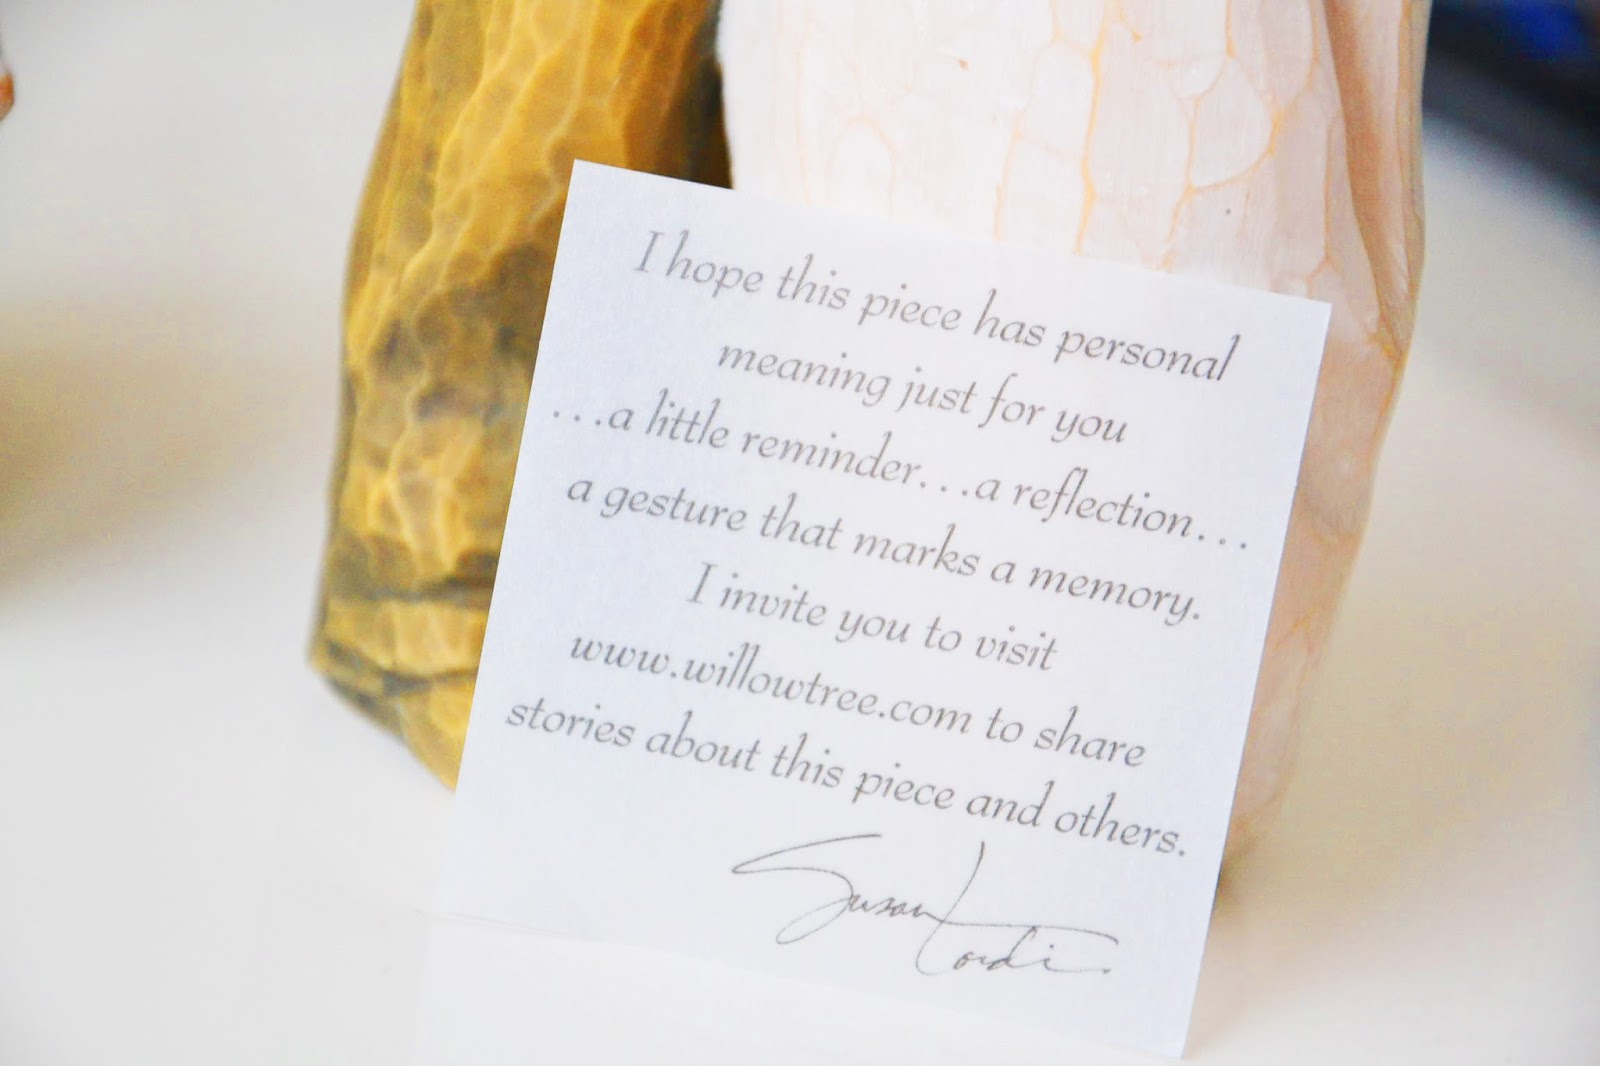 I hope this piece has personal
meaning just for you
...a little reminder...a reflection...
a gesture that marks a memory.
I invite you to visit
www.willowtree.com to share
stories about this piece and others.
Susan Lordi